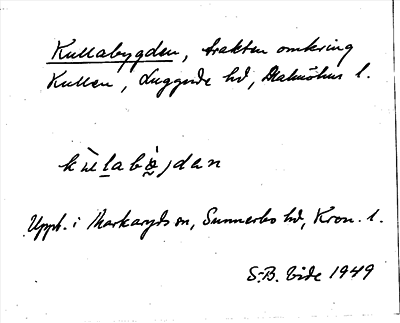 Kullabygden, trakten omkring
Kullen, Luggude hd, Malmöhus l.
Uppt. i Markaryds sn, Sunnerbo hd, Kron. l.
S.-B. Vide 1949